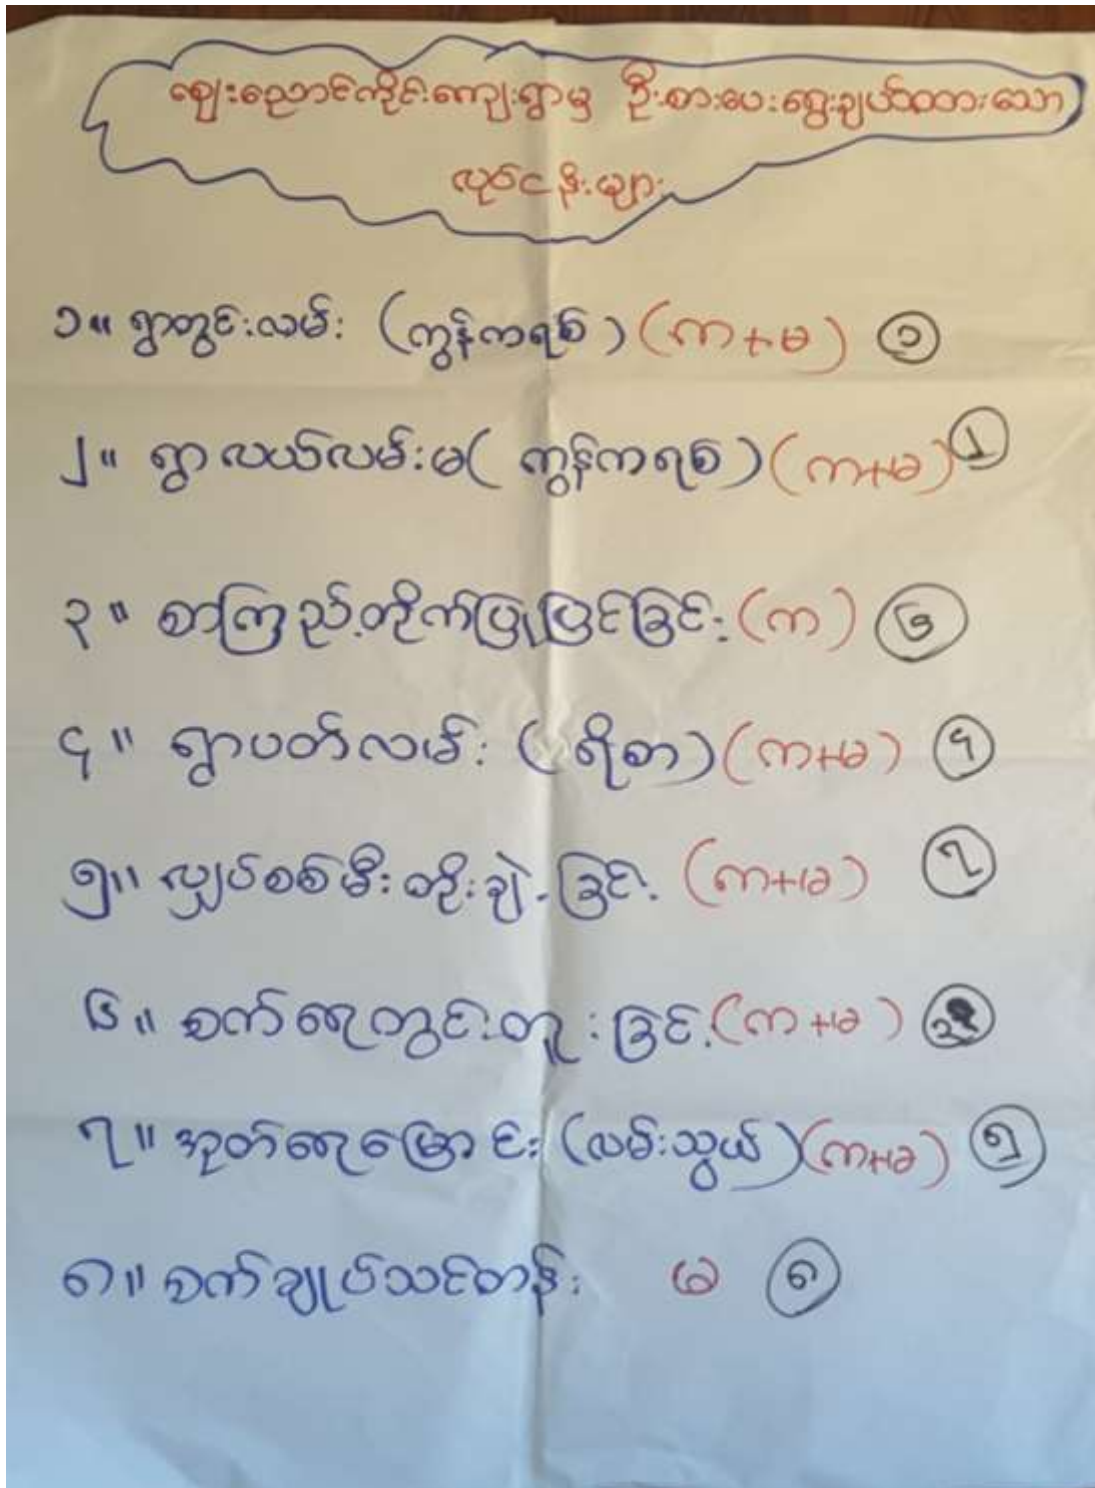 ဈေးညောင်ကိုင်းကျေးရွာမှ ဦးစားပေးရွေးချယ်ထားသော
လုပ်ငန်းများ
၁။ ရွာတွင်းလမ်း (ကွန်ကရစ်) (က+မ) ၁
၂။ ရွာလယ်လမ်းမ (ကွန်ကရစ်) (က+မ) ၂
၃။ စာကြည့်တိုက်ပြုပြင်ခြင်း (က) ၆
၄။ ရွာပတ်လမ်း (ဂျိုစာ) (က+မ) ၄
၅။ လျှပ်စစ်မီးတိုးချဲ့ခြင်း (က+မ) ၇
၆။ စက်ရေတွင်းတူးခြင်း (က+မ) ၃
၇။ အုတ်ရေမြောင်း (လမ်းသွယ်) (က+မ) ၅
၈။ စက်ချုပ်သင်တန်း မ ၈